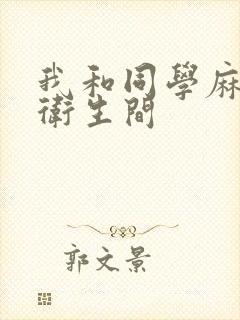 我和同學麻
衛生間
郭文景